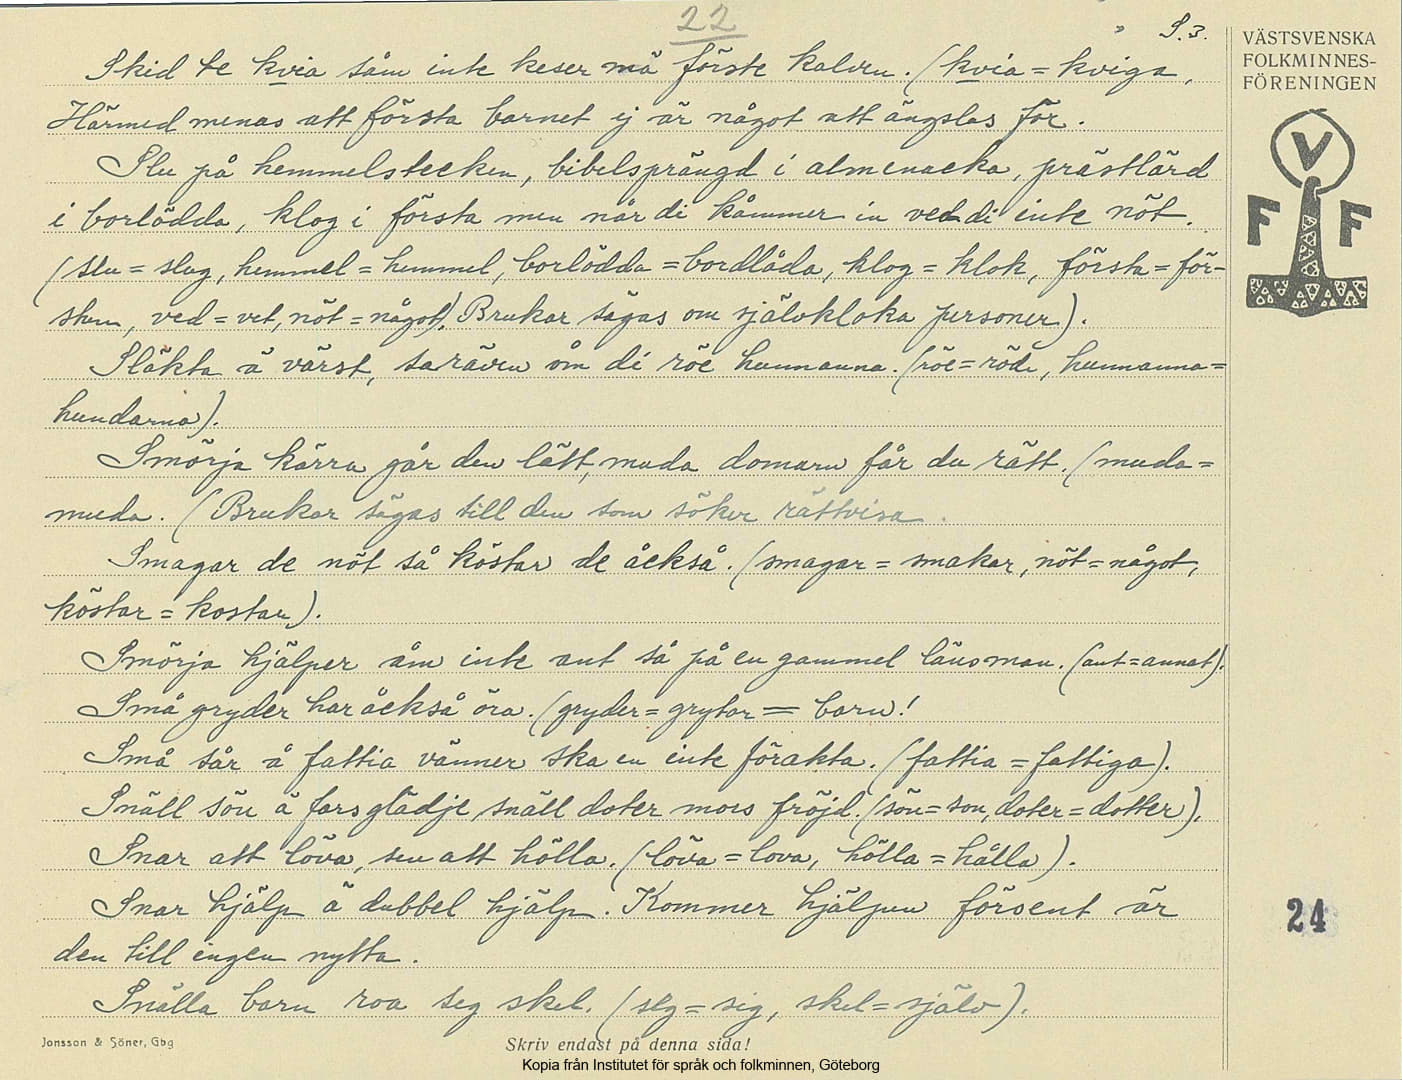 22
S. 3.
VÄSTSVENSKA
FOLKMINNES-
FÖRENINGEN
V
F F
Skid te kvia såm inte keser mä förste kalven. (kvia = kviga,
Härmed menas att första barnet ej är något att ängslas för.
Slu på hemmelstecken, bibelsprängd i almenacka, prästlärd
i borlödda, klog i första men når di kåmmer in ved di inte nöt.
(slu = slug, hemmel = himmel, borlödda = bordlåda, klog = klok, första = för-
stun, ved = vet, nöt = något), Brukar sägas om självkloka personer).
Släkta ä värst, sa räven åm di röe hunnanna. (röe = röda, hunnanna =
hundarna).
Smörja kärra går den lätt, muda domaren får du rätt. (muda =
muda. (Brukar sägas till den som söker rättvisa.
Smagar de nöt så köstar de åckså. (smagar = smakar, nöt = något,
köstar = kostar).
Smörja hjälper åm inte ant så på en gammel länsman. (ant = annat).
Små gryder har åckså öra. (gryder = grytor = barn!
Små sår å fattia vänner ska en inte förakta. (fattia = fattiga).
Snäll sön ä fars glädje, snäll doter mors fröjd. (sön = son, doter = dotter).
Snar att löva, sen att hölla. (löva = lova, hölla = hålla).
Snar hjälp ä dubbel hjälp. Kommer hjälpen försent är
den till ingen nytta.
Snälla barn roa seg skel. (seg = sig, skel = själv).
24
Jonsson & Söner, Gbg
Skriv endast på denna sida!
Kopia från Institutet för språk och folkminnen, Göteborg